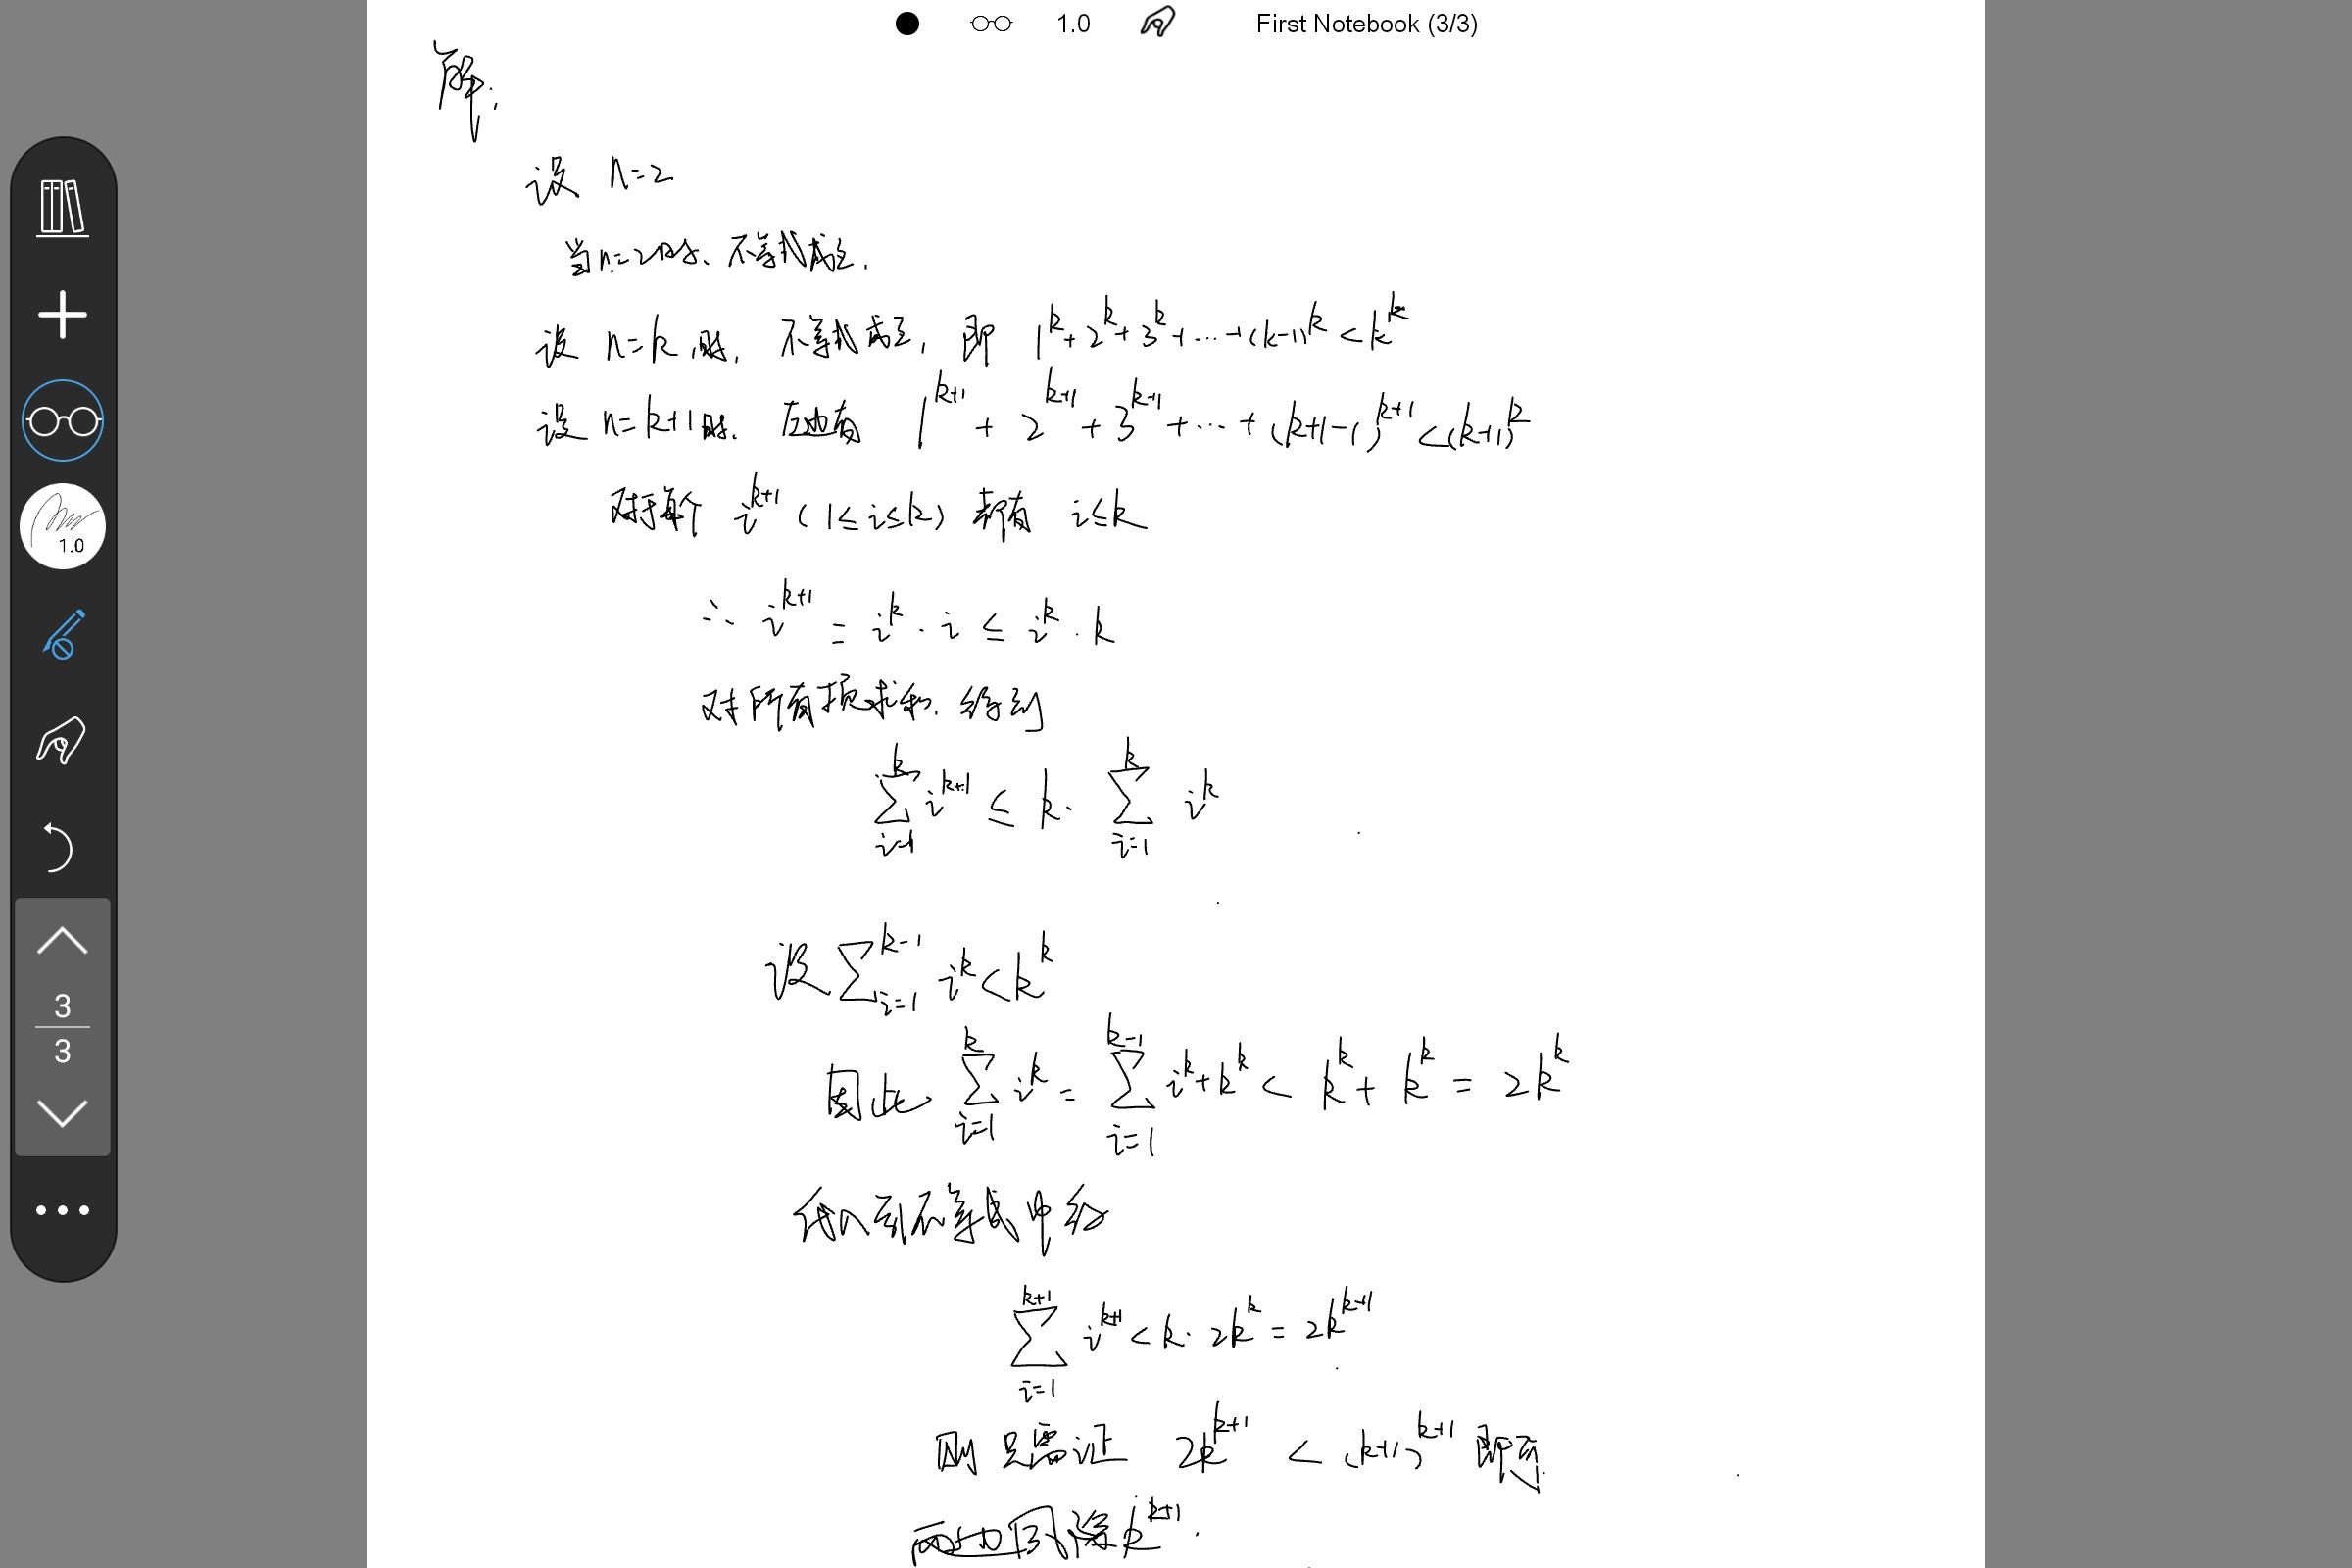 1.0 First Notebook (3/3)
解:
设 n=2
当n=2时、不等式成立.
设 n=k时, 不等式成立, 即 1^k+2^k+3^k+…+(k-1)^k<k^k
设 n=k+1时. 左边有 1^{k+1} + 2^{k+1} + 3^{k+1} +…+ (k+1-1)^{k+1} <(k+1)^k
对于每个 i^{k+1} (1≤i≤k) 都有 i≤k
∴ i^{k+1} = i^k · i ≤ i^k · k
对所有项求和. 得到
\sum_{i=1}^{k} i^{k+1} ≤ k· \sum_{i=1}^{k} i^k
设 \sum_{i=1}^{k-1} i^k<k^k
因此 \sum_{i=1}^{k} i^k = \sum_{i=1}^{k-1} i^k+k^k < k^k + k^k = 2k^k
代入到不等式中
\sum_{i=1}^{k+1} i^{k+1} < k· 2k^k = 2k^{k+1}
则只需证 2k^{k+1} < (k+1)^{k+1} 即可.
两边同除k^{k+1}.
1.0
3
3